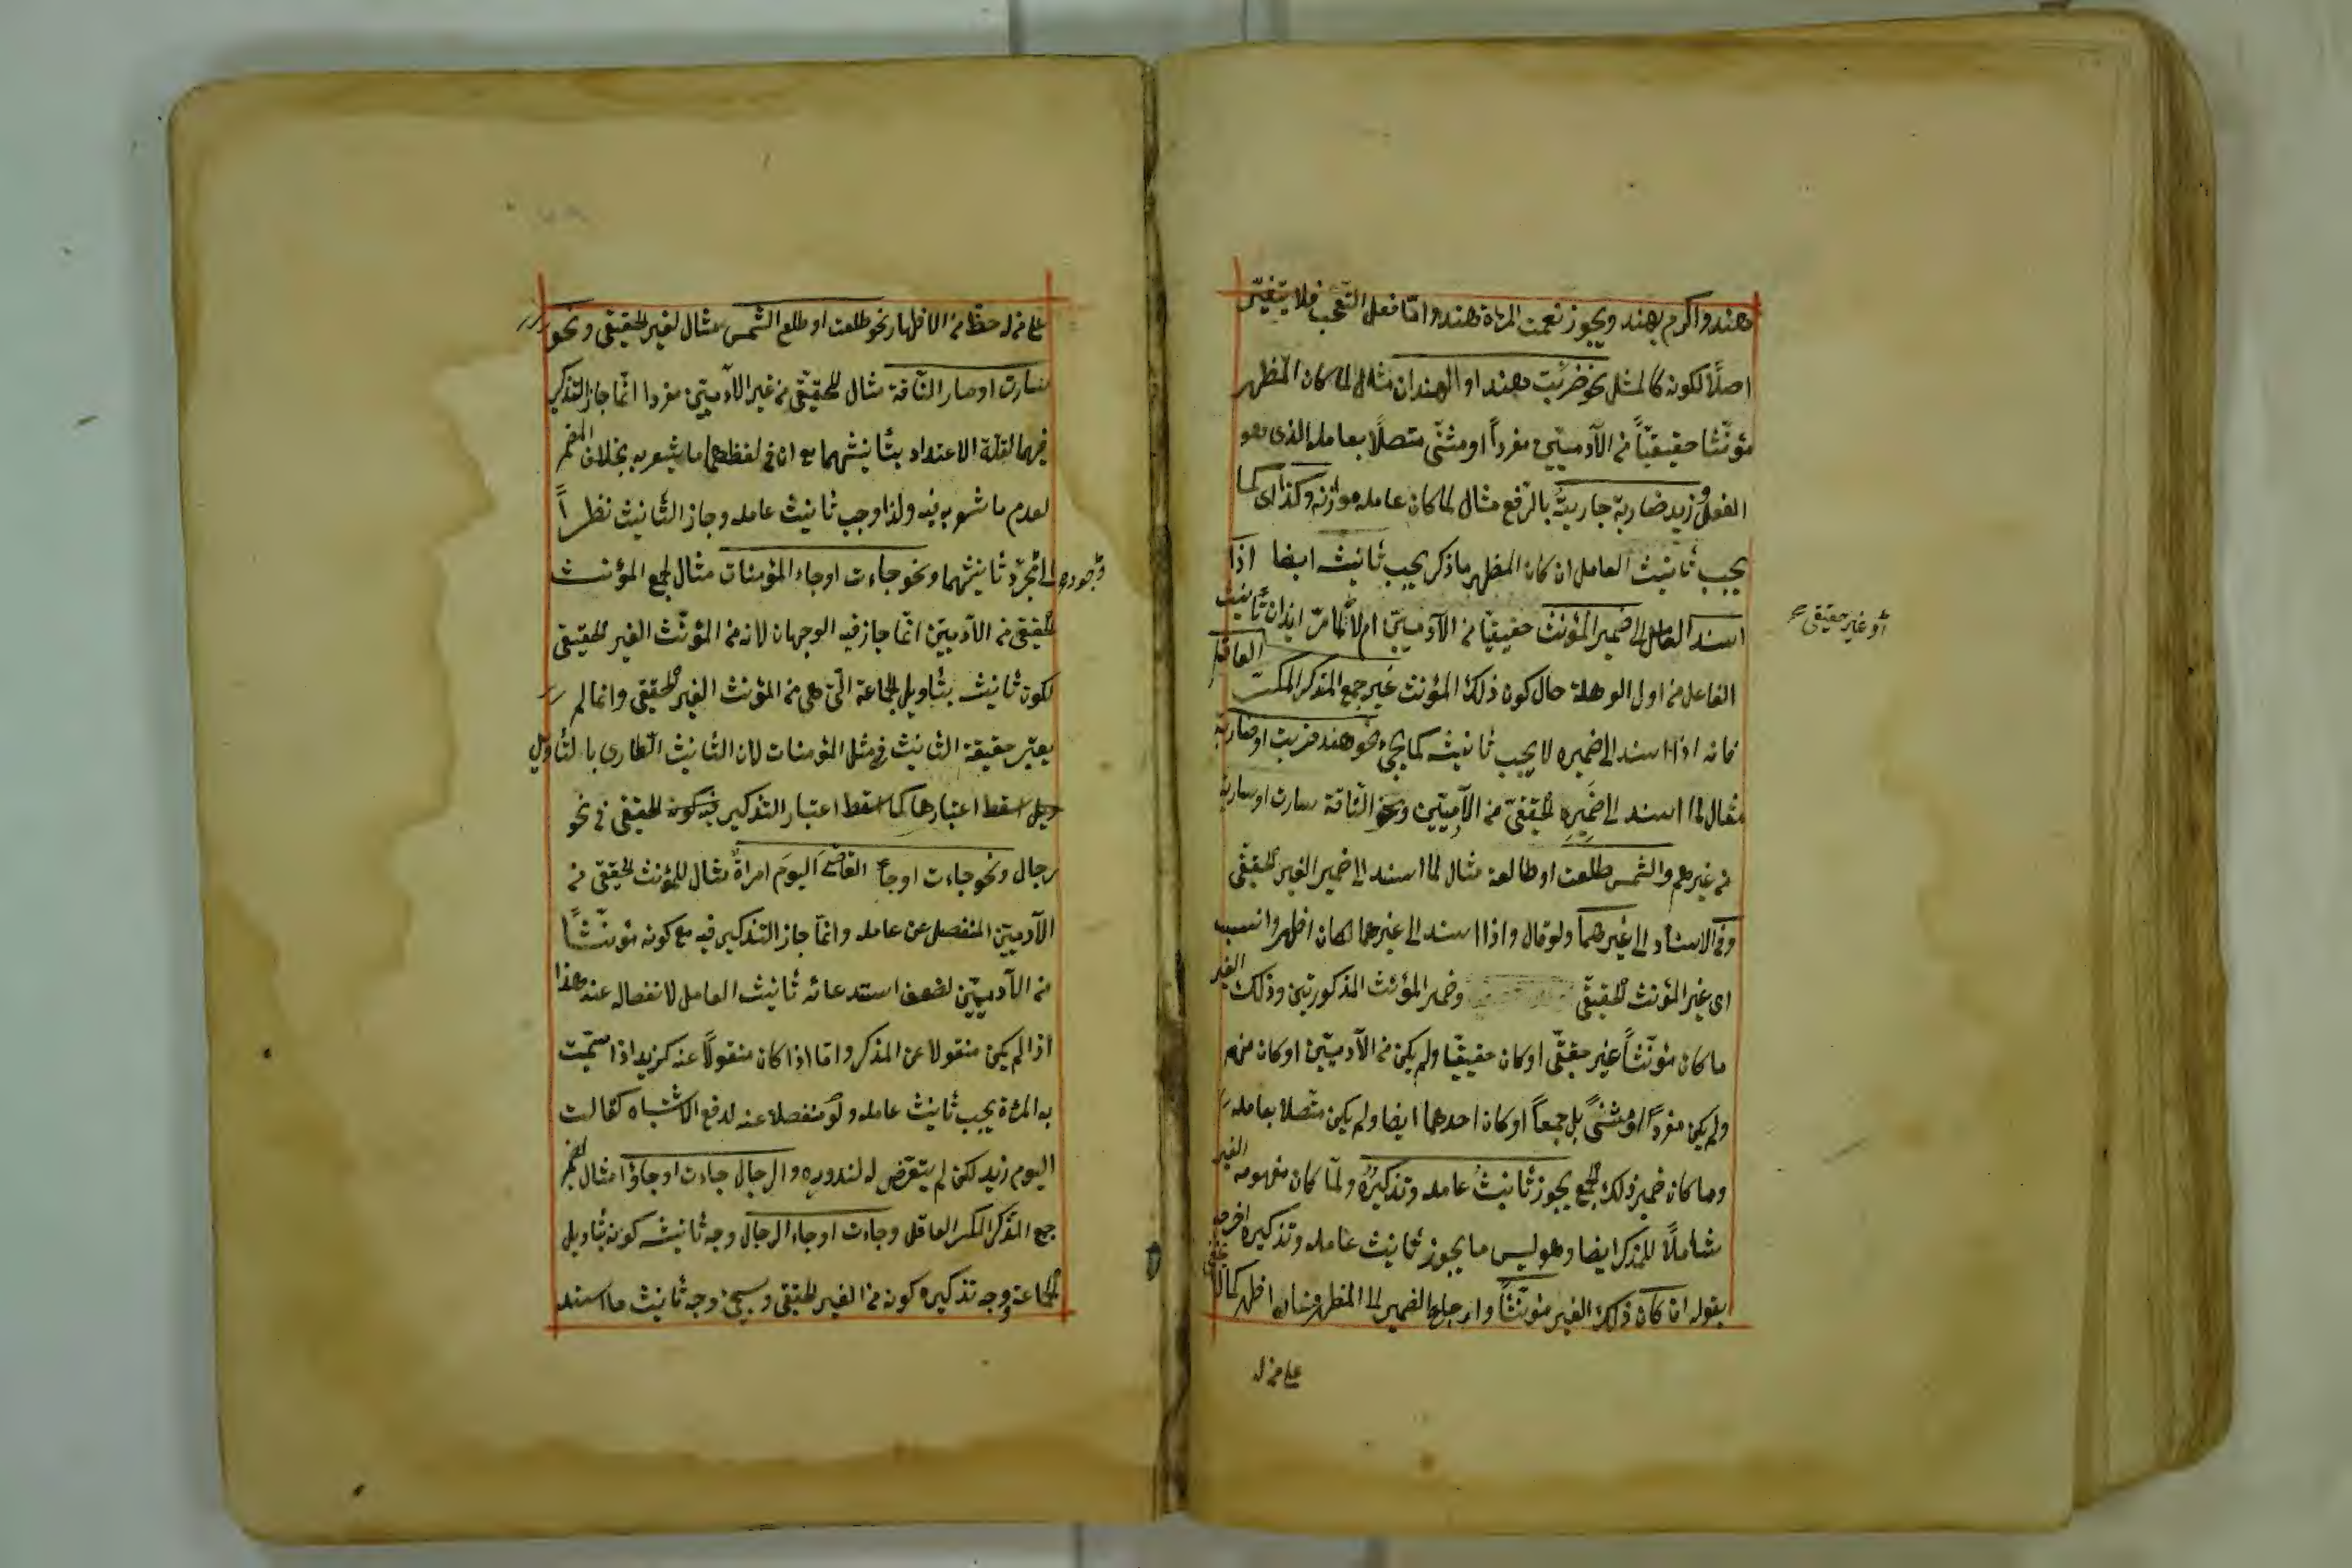 هند واكرم بهند ويجوز نعمت المرأة هند واما فعل التعجب فلا يتغير
اصلًا لكونه كالمثل نحو ضربت هند او الهندان مثال لما كان المظهر
مؤنّثا حقيقيّاً من الآدميّين مفرداً او مثنّى متصلًا بعامله الذى هو
الفعل و زيد ضاربة جاريتُه بالرّفع مثال لما كان عامله موازنه وكذا اى كما
يجب تأنيث العامل ان كان المظهر ما ذكر يجب تأنيثه ايضا اذا
اسند العامل الى ضمير المؤنث حقيقيّا من الآدميّين ام لا لما مرّ ايذان تأنيث
أو غير حقيقى صح
الفاعل من اول الوهلة حال كون ذلك المؤنث غير جمع المذكر المكسّر العاقل
فانه اذا اسند الى ضميره لا يجب تأنيثه كما يجئ نحو هند ضربت او ضاربة
مثال لما اسند الى ضميره الحقيقىّ من الآدميّين ونحو الناقة سارت او سارية
من غيرهم والشمس طلعت او طالعة مثال لما اسند الى ضمير الغير الحقيقى
وفى الاسناد الى غيرهما ولو قال واذا اسند الى غيرهما لكان اظهر وانسب
اى غير المؤنث الحقيقى وضمير المؤنث المذكورتين وذلك الغير
ما كان مؤنّثاً غير حقيقى او كان حقيقيّا ولم يكن من الآدميّين او كان منهم
ولم يكن مفرداً او مثنى بل جمعاً او كان احدهما ايضا ولم يكن متصلا بعامله
وما كان ضمير ذلك الجمع يجوز تأنيثُ عامله وتذكيرُه ولمّا كان مفهومه الغير
شاملًا للمذكر ايضا وهو ليس ما يجوز تأنيث عامله وتذكيره اخرجه
بقوله ان كان ذلك الغير مؤنّثاً وارجاع الضمير الى المظهر اظهر كما لا يخفى
على من له
على من له حظ من الاظهار نحو طلعت او طلع الشمس مثال لغير الحقيقى ونحو
سارت او سار النّاقة مثال للحقيقىّ من غير الآدميّين مفردا انّما جاز التذكير
فيهما لقلّة الاعتداد بتأنيثهما مع ان فى لفظهما ما يشعر به بخلاف المضمر
لعدم ما شعر به فيه ولذا وجب تأنيث عامله وجاز التأنيث نظراً
الى مجرّد تأنيثهما ونحو جاءت او جاء المؤمنات مثال لجمع المؤنث
وجوده
الحقيقى من الآدميّين انّما جاز فيه الوجهان لانه من المؤنّث الغير الحقيقى
لكون تأنيثه بتأويل الجماعة الّتى هى من المؤنث الغير الحقيقى وانما لم
يعتبر حقيقة التأنيث فى مثل المؤمنات لان التأنيث الطارى بالتأويل
اسقط اعتبارها كما اسقط اعتبار التذكير الحقيقى فى نحو
رجال ونحو جاءت او جاء القاضىَ اليومَ امرأةٌ مثال للمؤنث الحقيقى من
الآدميّين المنفصل عن عامله وانّما جاز التذكير فيه مع كونه مؤنّثاً
من الآدميّين لضعف استدعائه تأنيث العامل لانفصاله عنه هذا
اذا لم يكن منقولا عن المذكر واما اذا كان منقولًا عنه كزيد اذا سمّيت
به المرأة يجب تأنيث عامله ولو منفصلا عنه لدفع الاشتباه كقالت
اليوم زيد لكن لم يتعرّض له لندوره والرجال جاءت او جاؤا مثال لضمير
جمع المذكر المكسر العاقل وجاءت او جاء الرجال وجه تأنيثه كونه بتأويل
الجماعة ووجه تذكيره كونه من الغير الحقيقى وسيجئ وجه تأنيث ما اسند